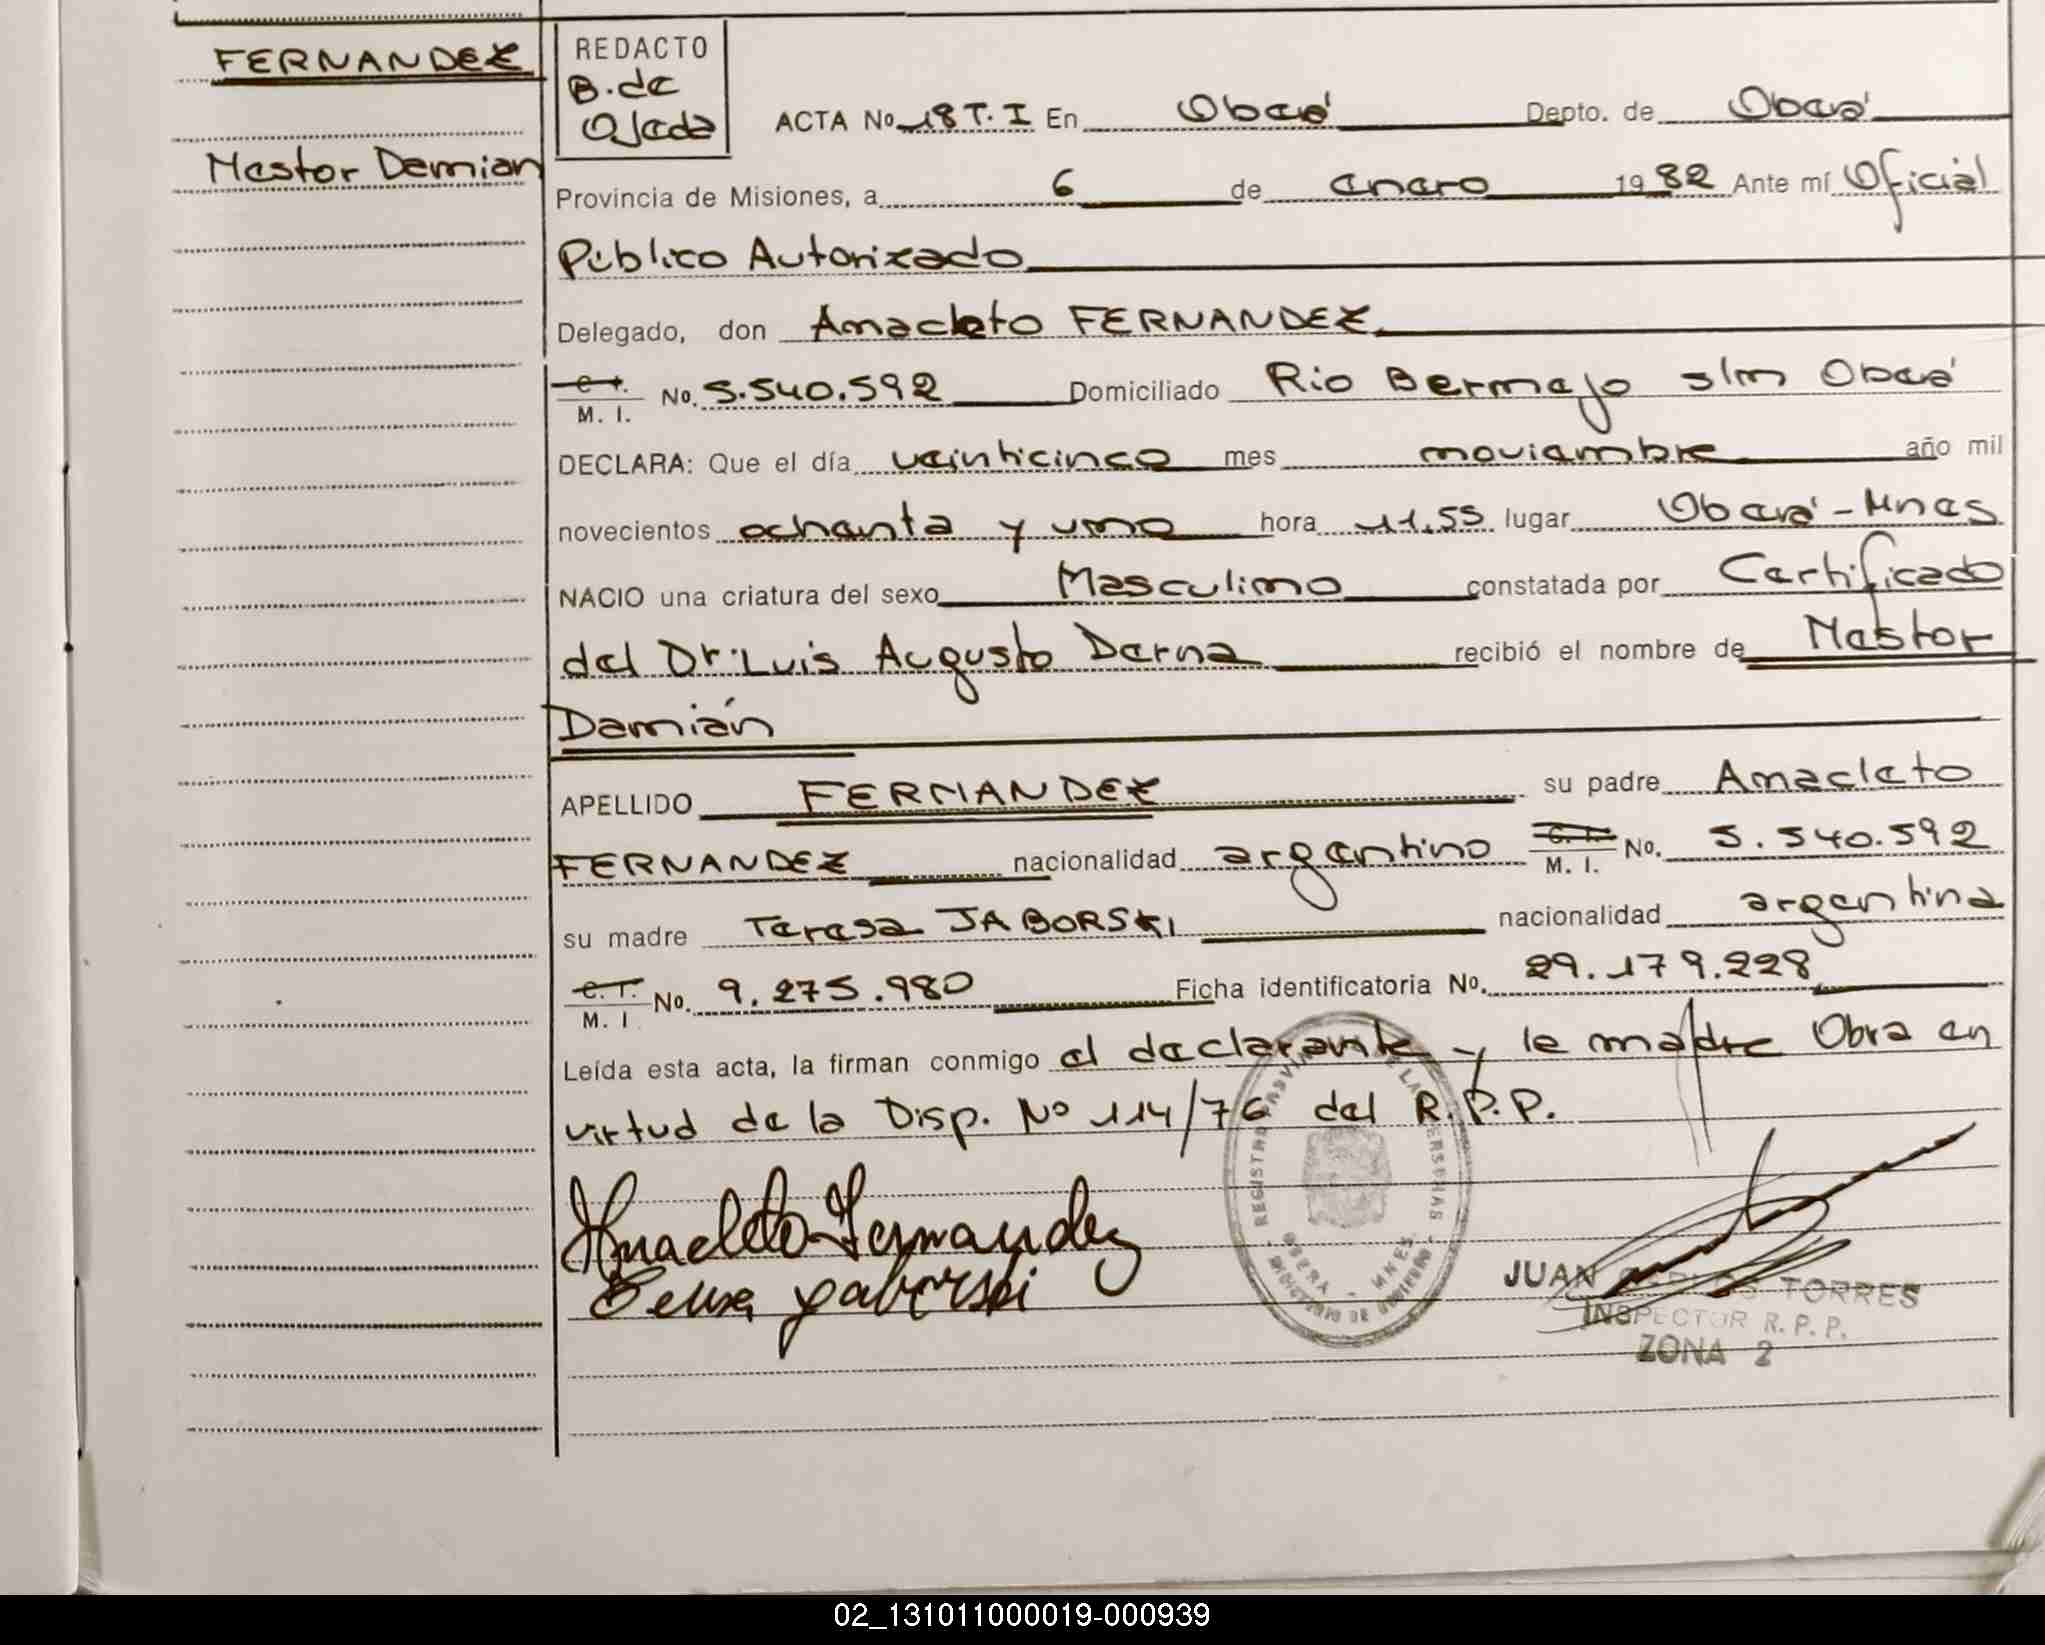 FERNANDEZ
Nestor Damian
REDACTO
B. de
Ojeda
ACTA No 18 T. I En Oberá Depto. de Oberá
Provincia de Misiones, a 6 de enero 1982 Ante mí Oficial
Público Autorizado
Delegado, don Anacleto FERNANDEZ
C. I.
M. I. No. 5.540.592 Domiciliado Rio Bermejo s/n Oberá
DECLARA: Que el día veinticinco mes noviembre año mil
novecientos ochenta y uno hora 11.55 lugar Oberá - Mnes
NACIO una criatura del sexo Masculino constatada por Certificado
del Dr. Luis Augusto Derna recibió el nombre de Nestor
Damián
APELLIDO FERNANDEZ su padre Anacleto
FERNANDEZ nacionalidad argentino C. I.
M. I. No. 5.540.592
su madre Teresa JABORSKI nacionalidad argentina
C. I.
M. I No. 9.275.980 Ficha identificatoria No. 29.179.228
Leída esta acta, la firman conmigo el declarante y la madre Obra en
virtud de la Disp. Nº 114/76 del R.P.P.
Anacleto Fernandez
Teresa Yaborski
REGISTRO PERSONAS
OBERA - MNES.
JUAN CARLOS TORRES
INSPECTOR R. P. P.
ZONA 2
02_131011000019-000939